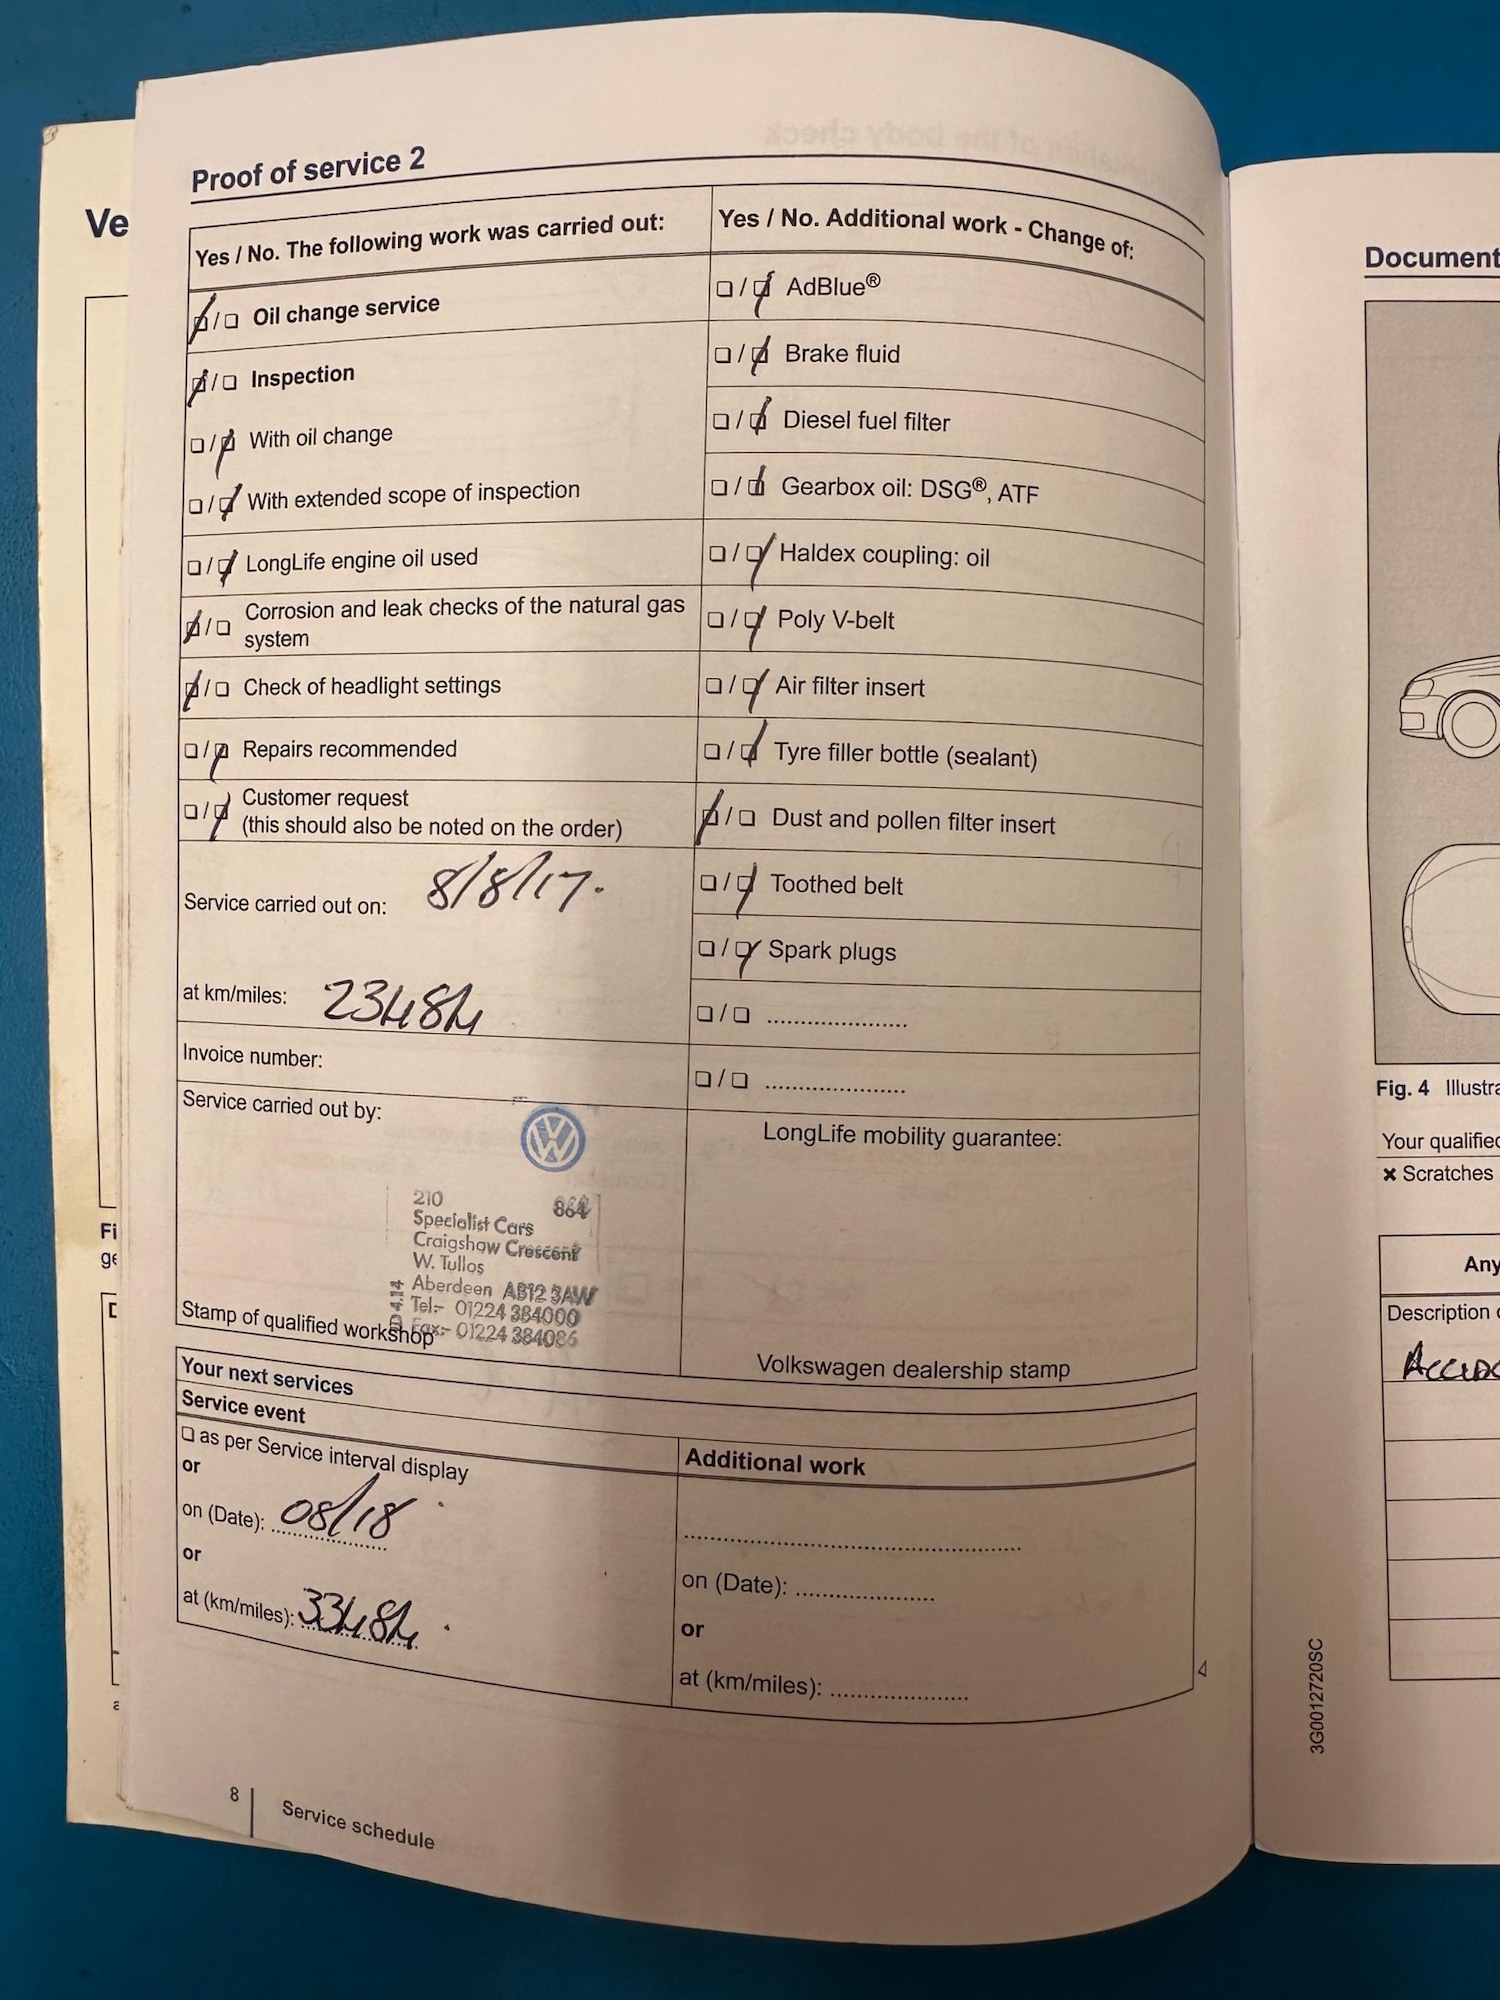 Ve
Proof of service 2
Yes / No. The following work was carried out:
Yes / No. Additional work - Change of:
❏ / ❏ Oil change service
❏ / ❏ Inspection
❏ / ❏ With oil change
❏ / ❏ With extended scope of inspection
❏ / ❏ LongLife engine oil used
❏ / ❏ Corrosion and leak checks of the natural gas
system
❏ / ❏ Check of headlight settings
❏ / ❏ Repairs recommended
❏ / ❏ Customer request
(this should also be noted on the order)
Service carried out on: 8/8/17.
at km/miles: 23484
Invoice number:
Service carried out by:
210 864
Specialist Cars
Craigshaw Crescent
W. Tullos
Aberdeen AB12 3AW
Tel:- 01224 384000
Fax:- 01224 384086
D 4.14
Stamp of qualified workshop
❏ / ❏ AdBlue®
❏ / ❏ Brake fluid
❏ / ❏ Diesel fuel filter
❏ / ❏ Gearbox oil: DSG®, ATF
❏ / ❏ Haldex coupling: oil
❏ / ❏ Poly V-belt
❏ / ❏ Air filter insert
❏ / ❏ Tyre filler bottle (sealant)
❏ / ❏ Dust and pollen filter insert
❏ / ❏ Toothed belt
❏ / ❏ Spark plugs
❏ / ❏ ......................
❏ / ❏ ......................
LongLife mobility guarantee:
Volkswagen dealership stamp
Your next services
Service event
❏ as per Service interval display
or
on (Date): 08/18
or
at (km/miles): 33484
Additional work
on (Date): ......................
or
at (km/miles): ......................
8
Service schedule
Fi
ge
D
Document
Fig. 4 Illustra
Your qualified
× Scratches
Any
Description
3G0012720SC